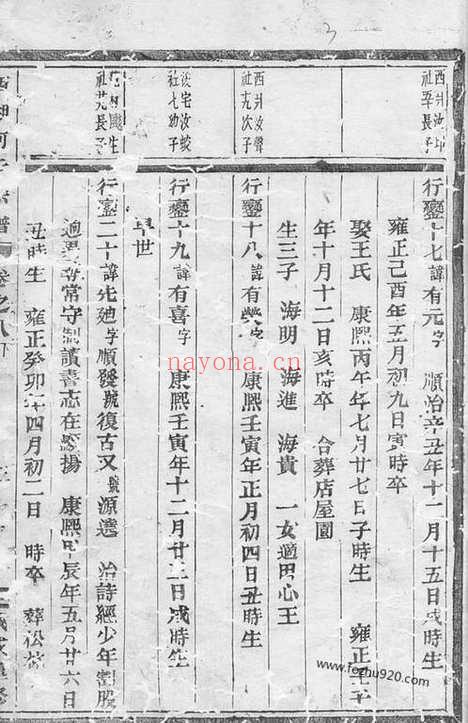 3
西封汝
社 長子
行鑾十七諱有元字 順治辛丑年十二月十五日戌時生
雍正己酉年五月初九日寅時卒
娶王氏 康熙丙午年七月廿七日子時生 雍正壬子
年十月十二日亥時卒 合葬店屋園
生三子 海明 海進 海貴 一女適 心王
西封汝聲
社 次子
行鑾十八諱有 字 康熙壬寅年正月初四日丑時生
宅汝
社七幼子
行鑾十九諱有喜字 康熙壬寅年十二月廿三日戌時生
早世
生
社 長子
行鑾二十諱 廸字順發號復古又號源遠 治詩經少年割股
常守制讀書志在 揚 康熙甲辰年五月廿六日
丑時生 雍正癸卯年四月初二日 時卒 葬松
譜 卷之八下
nayona.cn
www.fozhu920.com